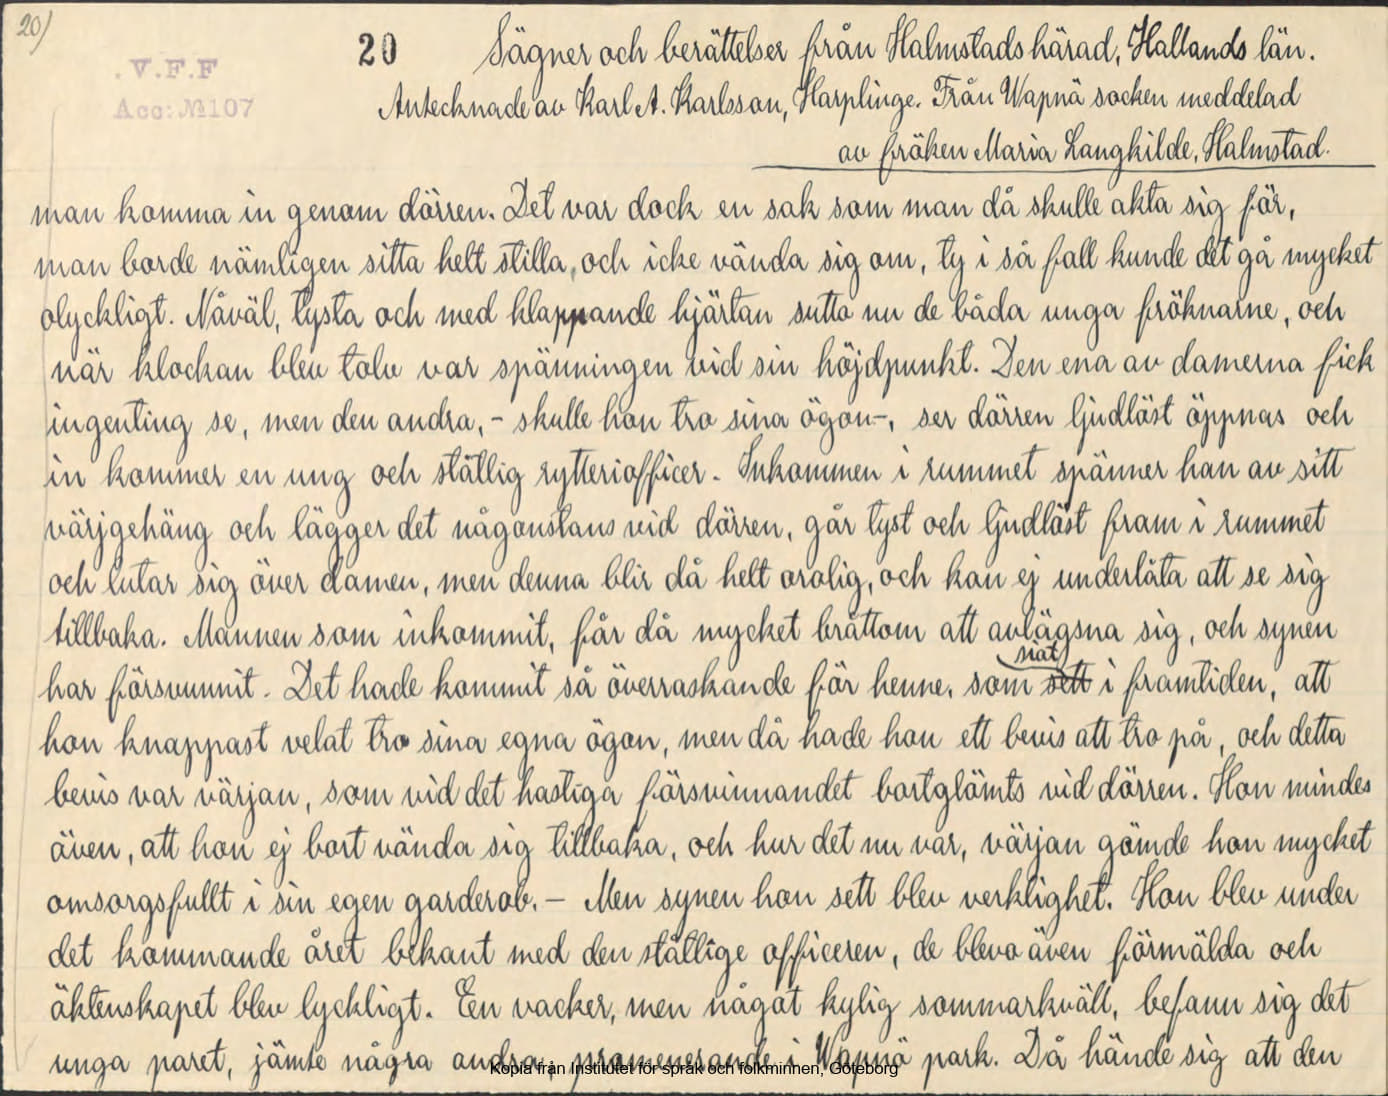 20)
20 Sägner och berättelser från Halmstads härad, Hallands län.
. V.F.F
Acc: №107
Antecknade av Karl A. Karlsson, Harplinge. Från Wapnä socken meddelad
av fröken Maria Langkilde, Halmstad.
man komma in genom dörren. Det var dock en sak som man då skulle akta sig för,
man borde nämligen sitta helt stilla, och icke vända sig om, ty i så fall kunde det gå mycket
olyckligt. Nåväl, tysta och med klappande hjärtan sutto nu de båda unga fröknarne, och
när klockan blev tolv var spänningen vid sin höjdpunkt. Den ena av damerna fick
ingenting se, men den andra, - skulle hon tro sina ögon -, ser dörren ljudlöst öppnas och
in kommer en ung och ståtlig rytteriofficer. Inkommen i rummet spänner han av sitt
värjgehäng och lägger det någonstans vid dörren, går tyst och ljudlöst fram i rummet
och lutar sig över damen, men denna blir då helt orolig, och kan ej underlåta att se sig
tillbaka. Mannen som inkommit, får då mycket bråttom att avlägsna sig, och synen
har försvunnit. Det hade kommit så överraskande för henne, som sett i framtiden, att
hon knappast velat tro sina egna ögon, men då hade hon ett bevis att tro på, och detta
bevis var värjan, som vid det hastiga försvinnandet bortglömts vid dörren. Hon mindes
även, att hon ej bort vända sig tillbaka, och hur det nu var, värjan gömde hon mycket
omsorgsfullt i sin egen garderob. — Men synen hon sett blev verklighet. Hon blev under
det kommande året bekant med den ståtlige officeren, de blevo även förmälda och
äktenskapet blev lyckligt. En vacker, men något kylig sommarkväll, befann sig det
unga paret, jämte några andra, promenerande i Wapnö park. Då hände sig att den
Kopia från Institutet för språk och folkminnen, Göteborg